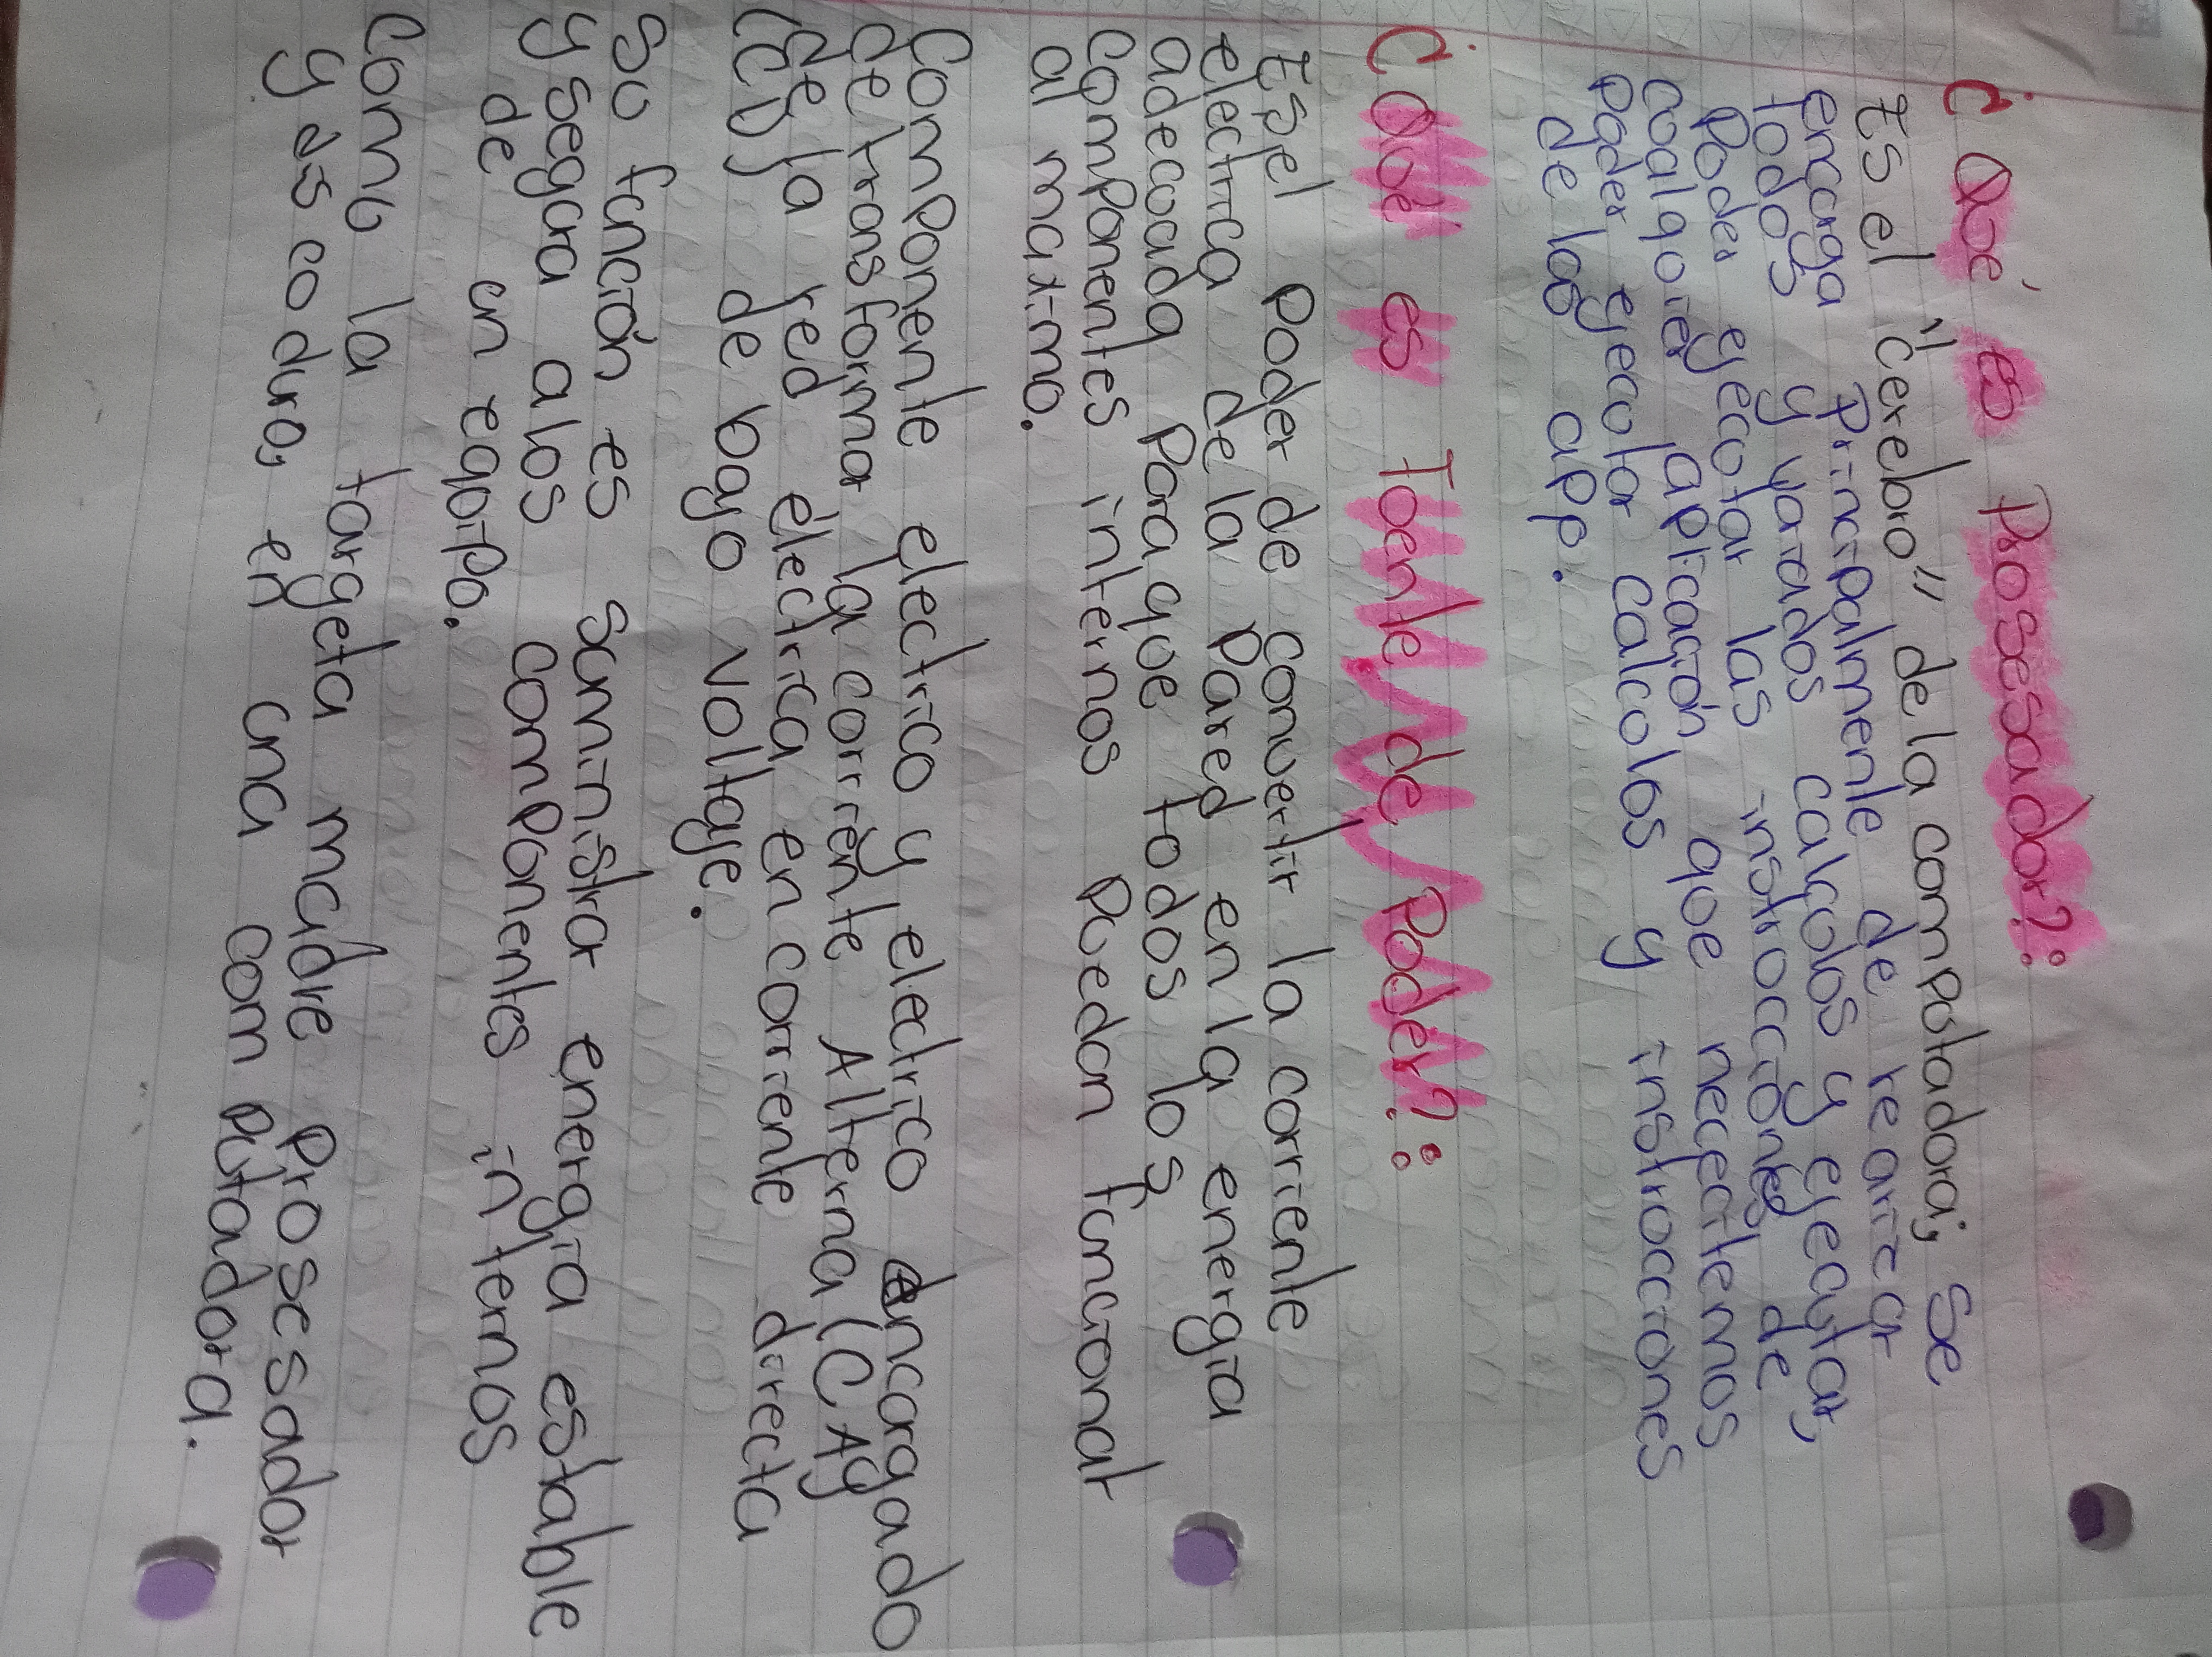 ¿Qué es Prosesador?:
Es el "cerebro" de la computadora; se
encarga principalmente de rearizar
todos y variados calcolos y ejecutar,
Poder ejecotar las instrocciones de
coalqoier apricación qoe necectemos
poder ejecolar calcolos y instrocciones
de las app.
¿Cóol es Foente de Poder?:
Es el Poder de convertir la corriente
electrica de la Pared en la energia
adecoada Para qoe todos los
componentes internos Puedan funcionar
al maximo.
Componente electrico y electrico encargado
de transformar la corriente Alterna (CA)
de la red electrica en corriente directa
(CD) de bajo voltaje.
So función es suministrar energia estable
y segura a los componentes internos
de un equipo.
Como la targeta madre Prosesador
y es co duro, en una computadora.